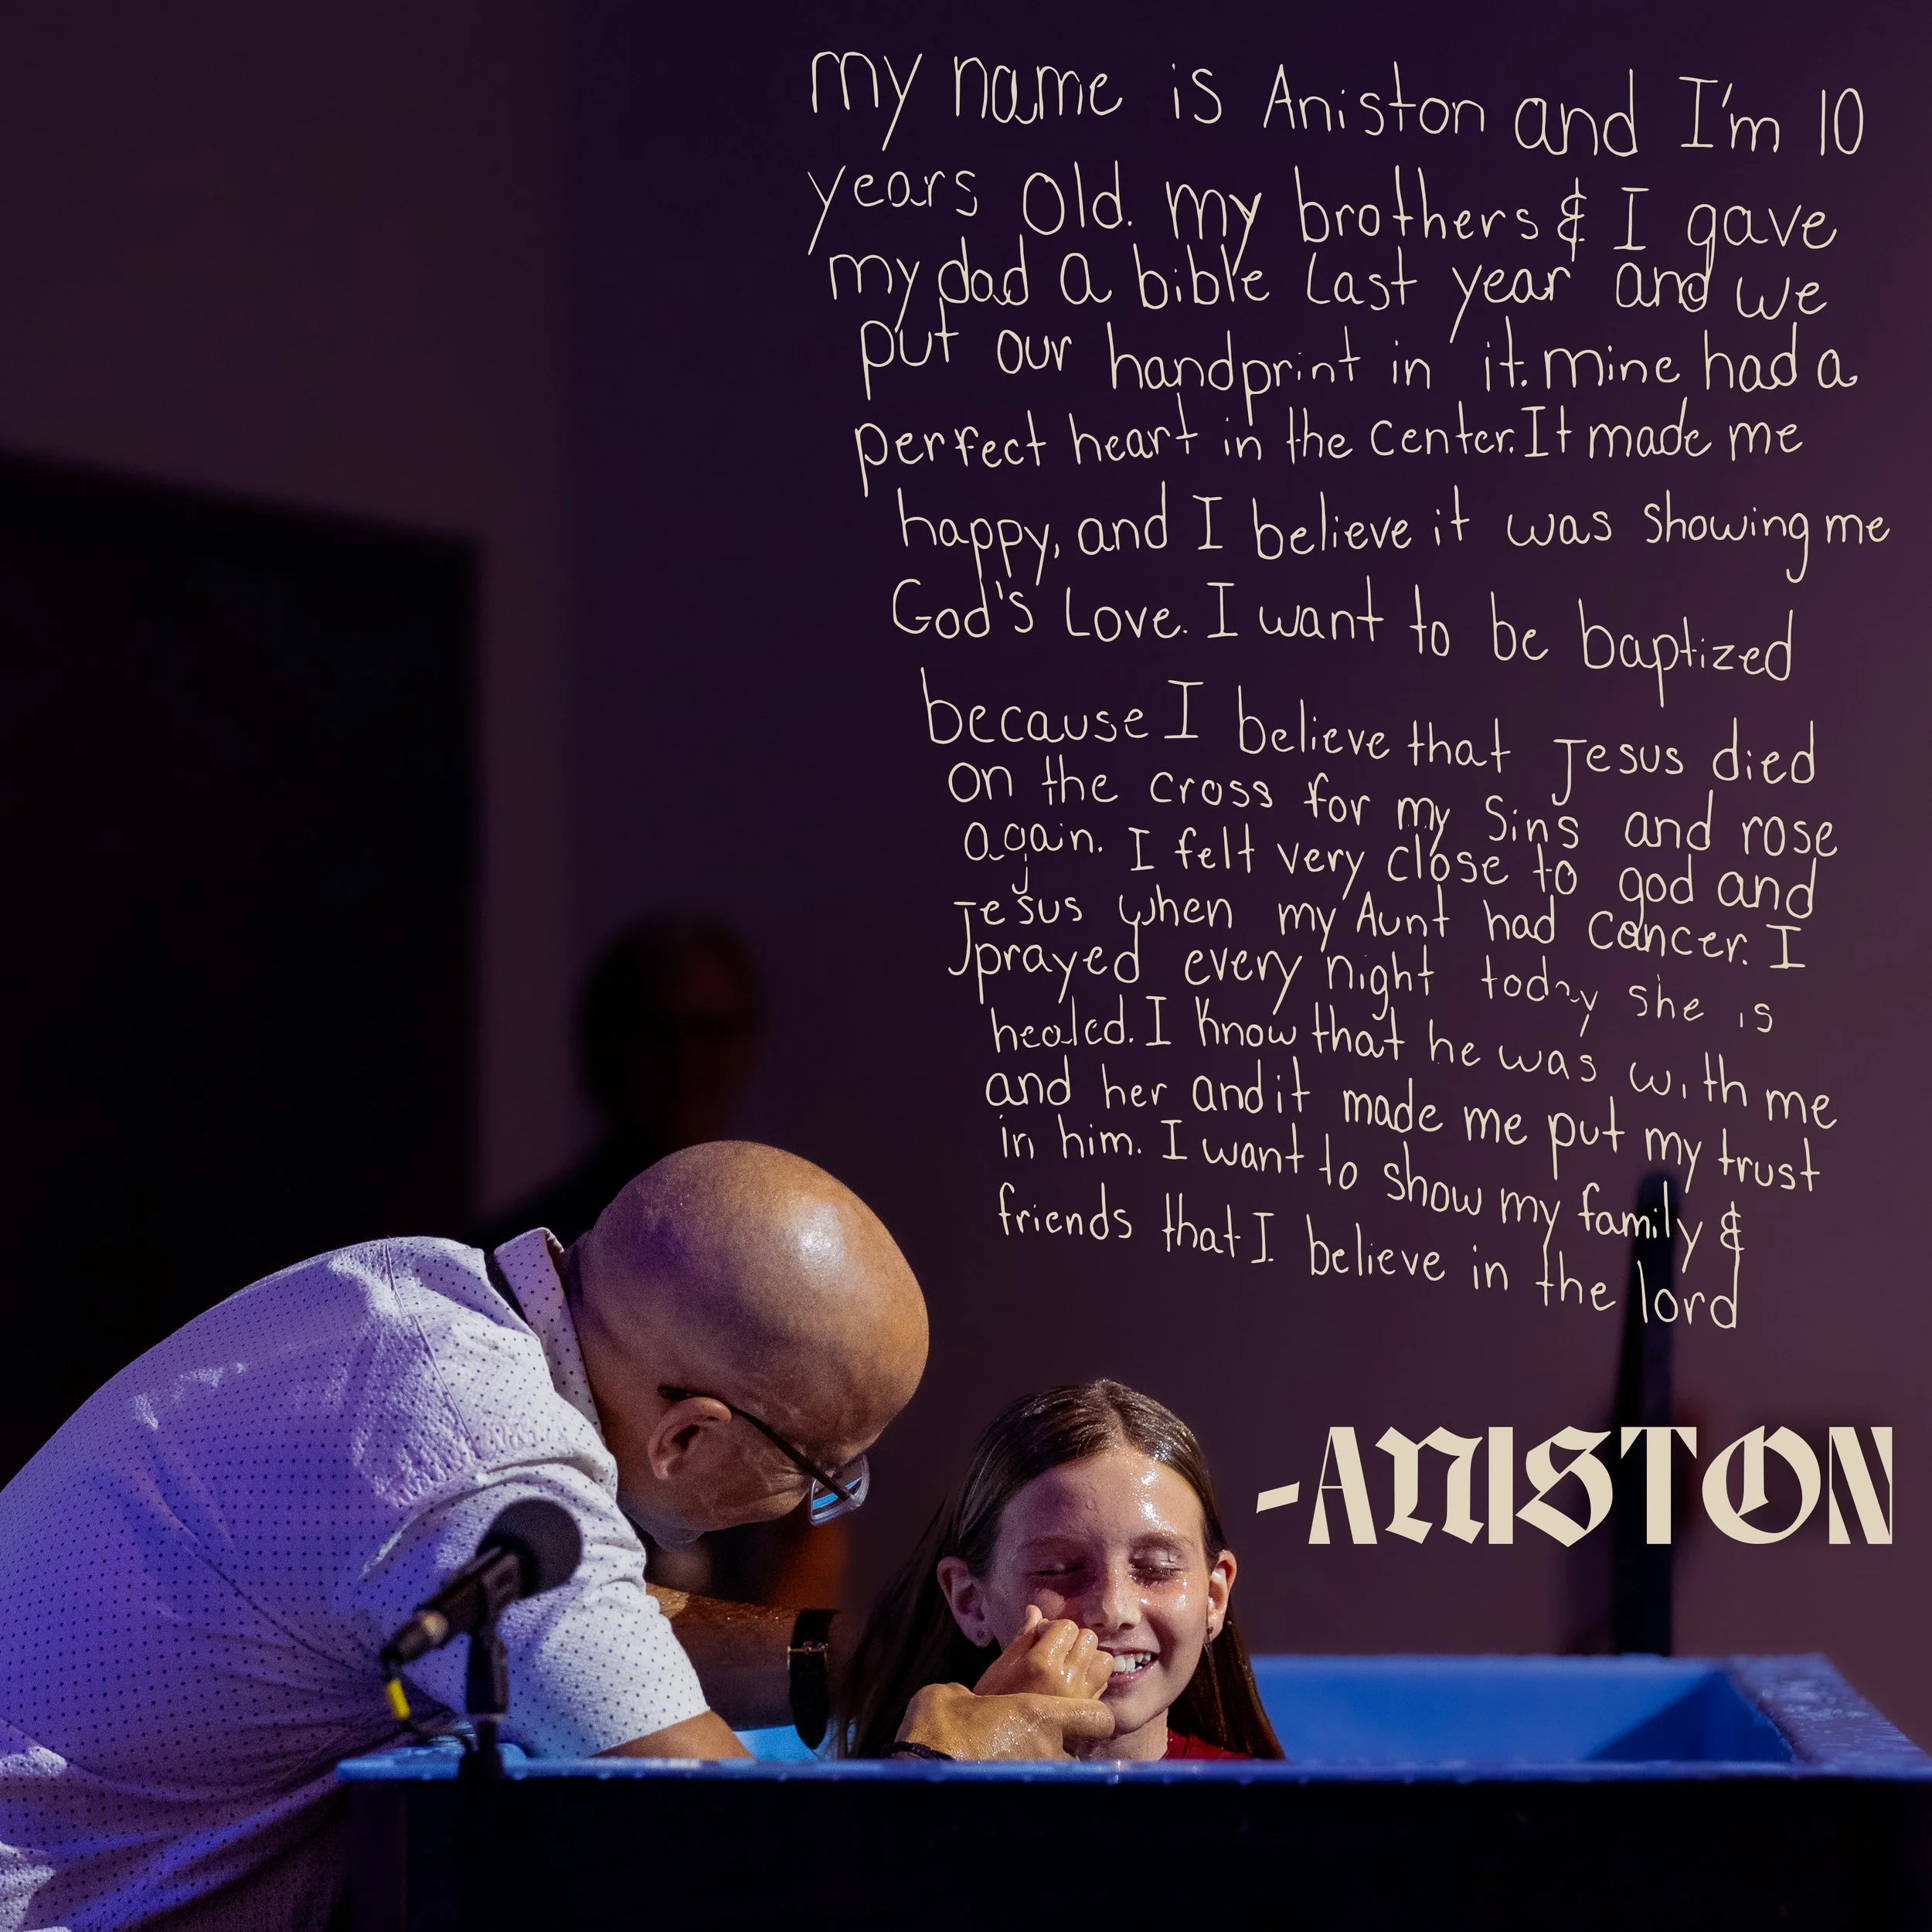 my name is Aniston and I'm 10
years old. my brothers & I gave
my dad a bible last year and we
put our handprint in it. mine had a
perfect heart in the center. It made me
happy, and I believe it was showing me
God's Love. I want to be baptized
because I believe that Jesus died
on the cross for my sins and rose
again. I felt very close to god and
Jesus when my Aunt had cancer. I
prayed every night today she is
healed. I know that he was with me
and her and it made me put my trust
in him. I want to show my family &
friends that I believe in the lord
-ANISTON